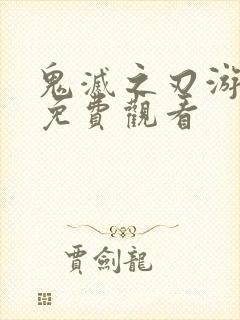 鬼滅之刃游
免費觀看
賈劍龍